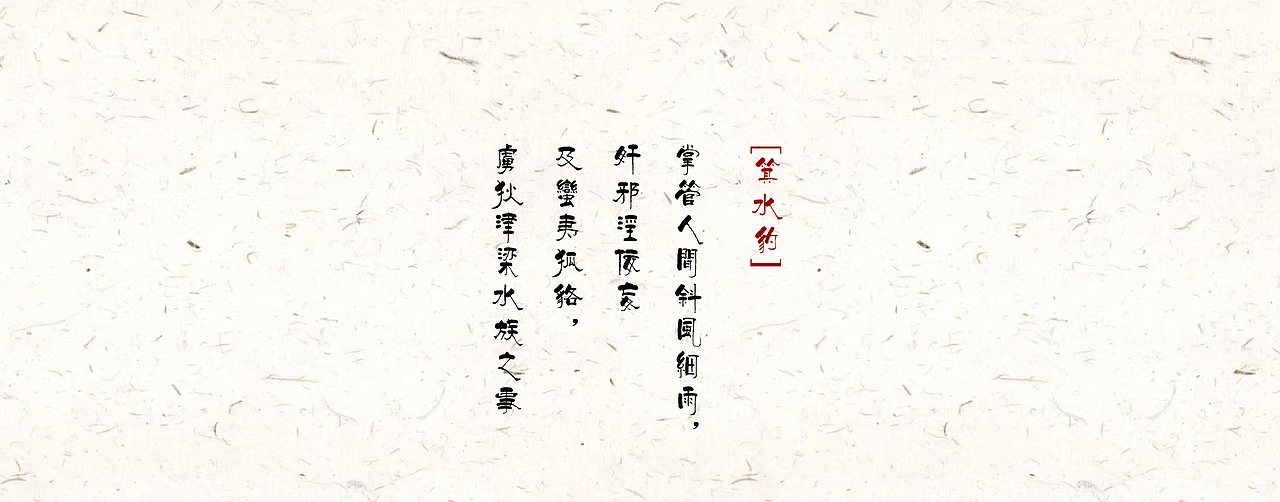 [箕水豹]
掌管人間斜風細雨，
奸邪淫亥
及蠻夷狐貉，
虜狄津梁水族之事